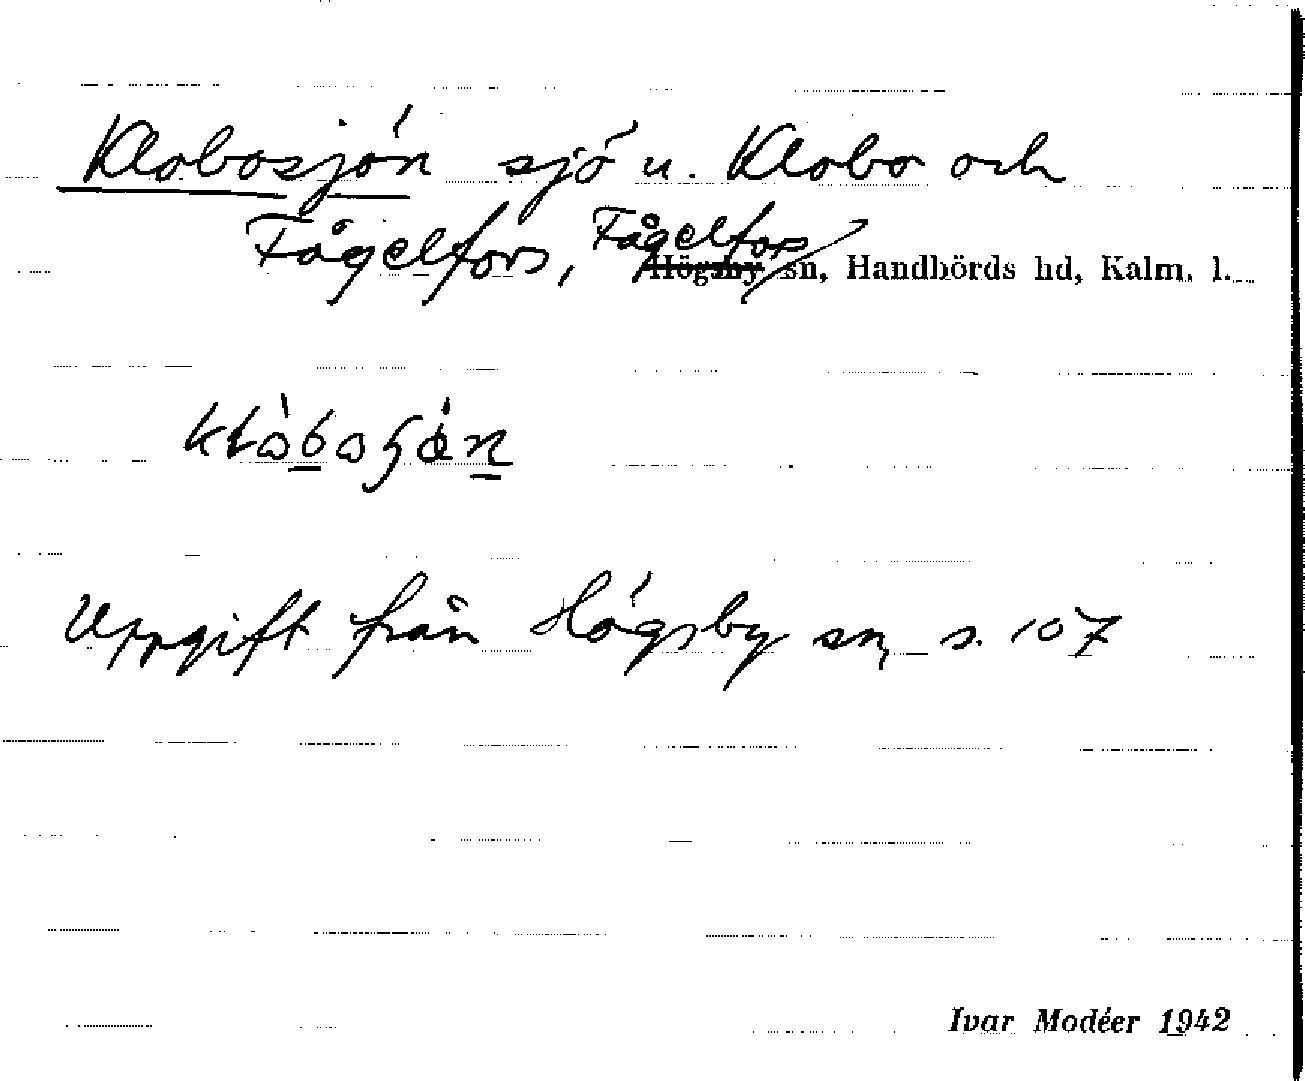 Klobosjön sjö u. Klobo och
Fågelfors, Fågelfors sn, Handbörds hd, Kalm. l.
Uppgift från Högsby sn, s. 107
Ivar Modéer 1942